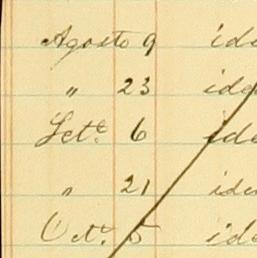 Agosto 9 ide
" 23 ide
Sete. 6 ide
" 21 iden
Octe. 5 id